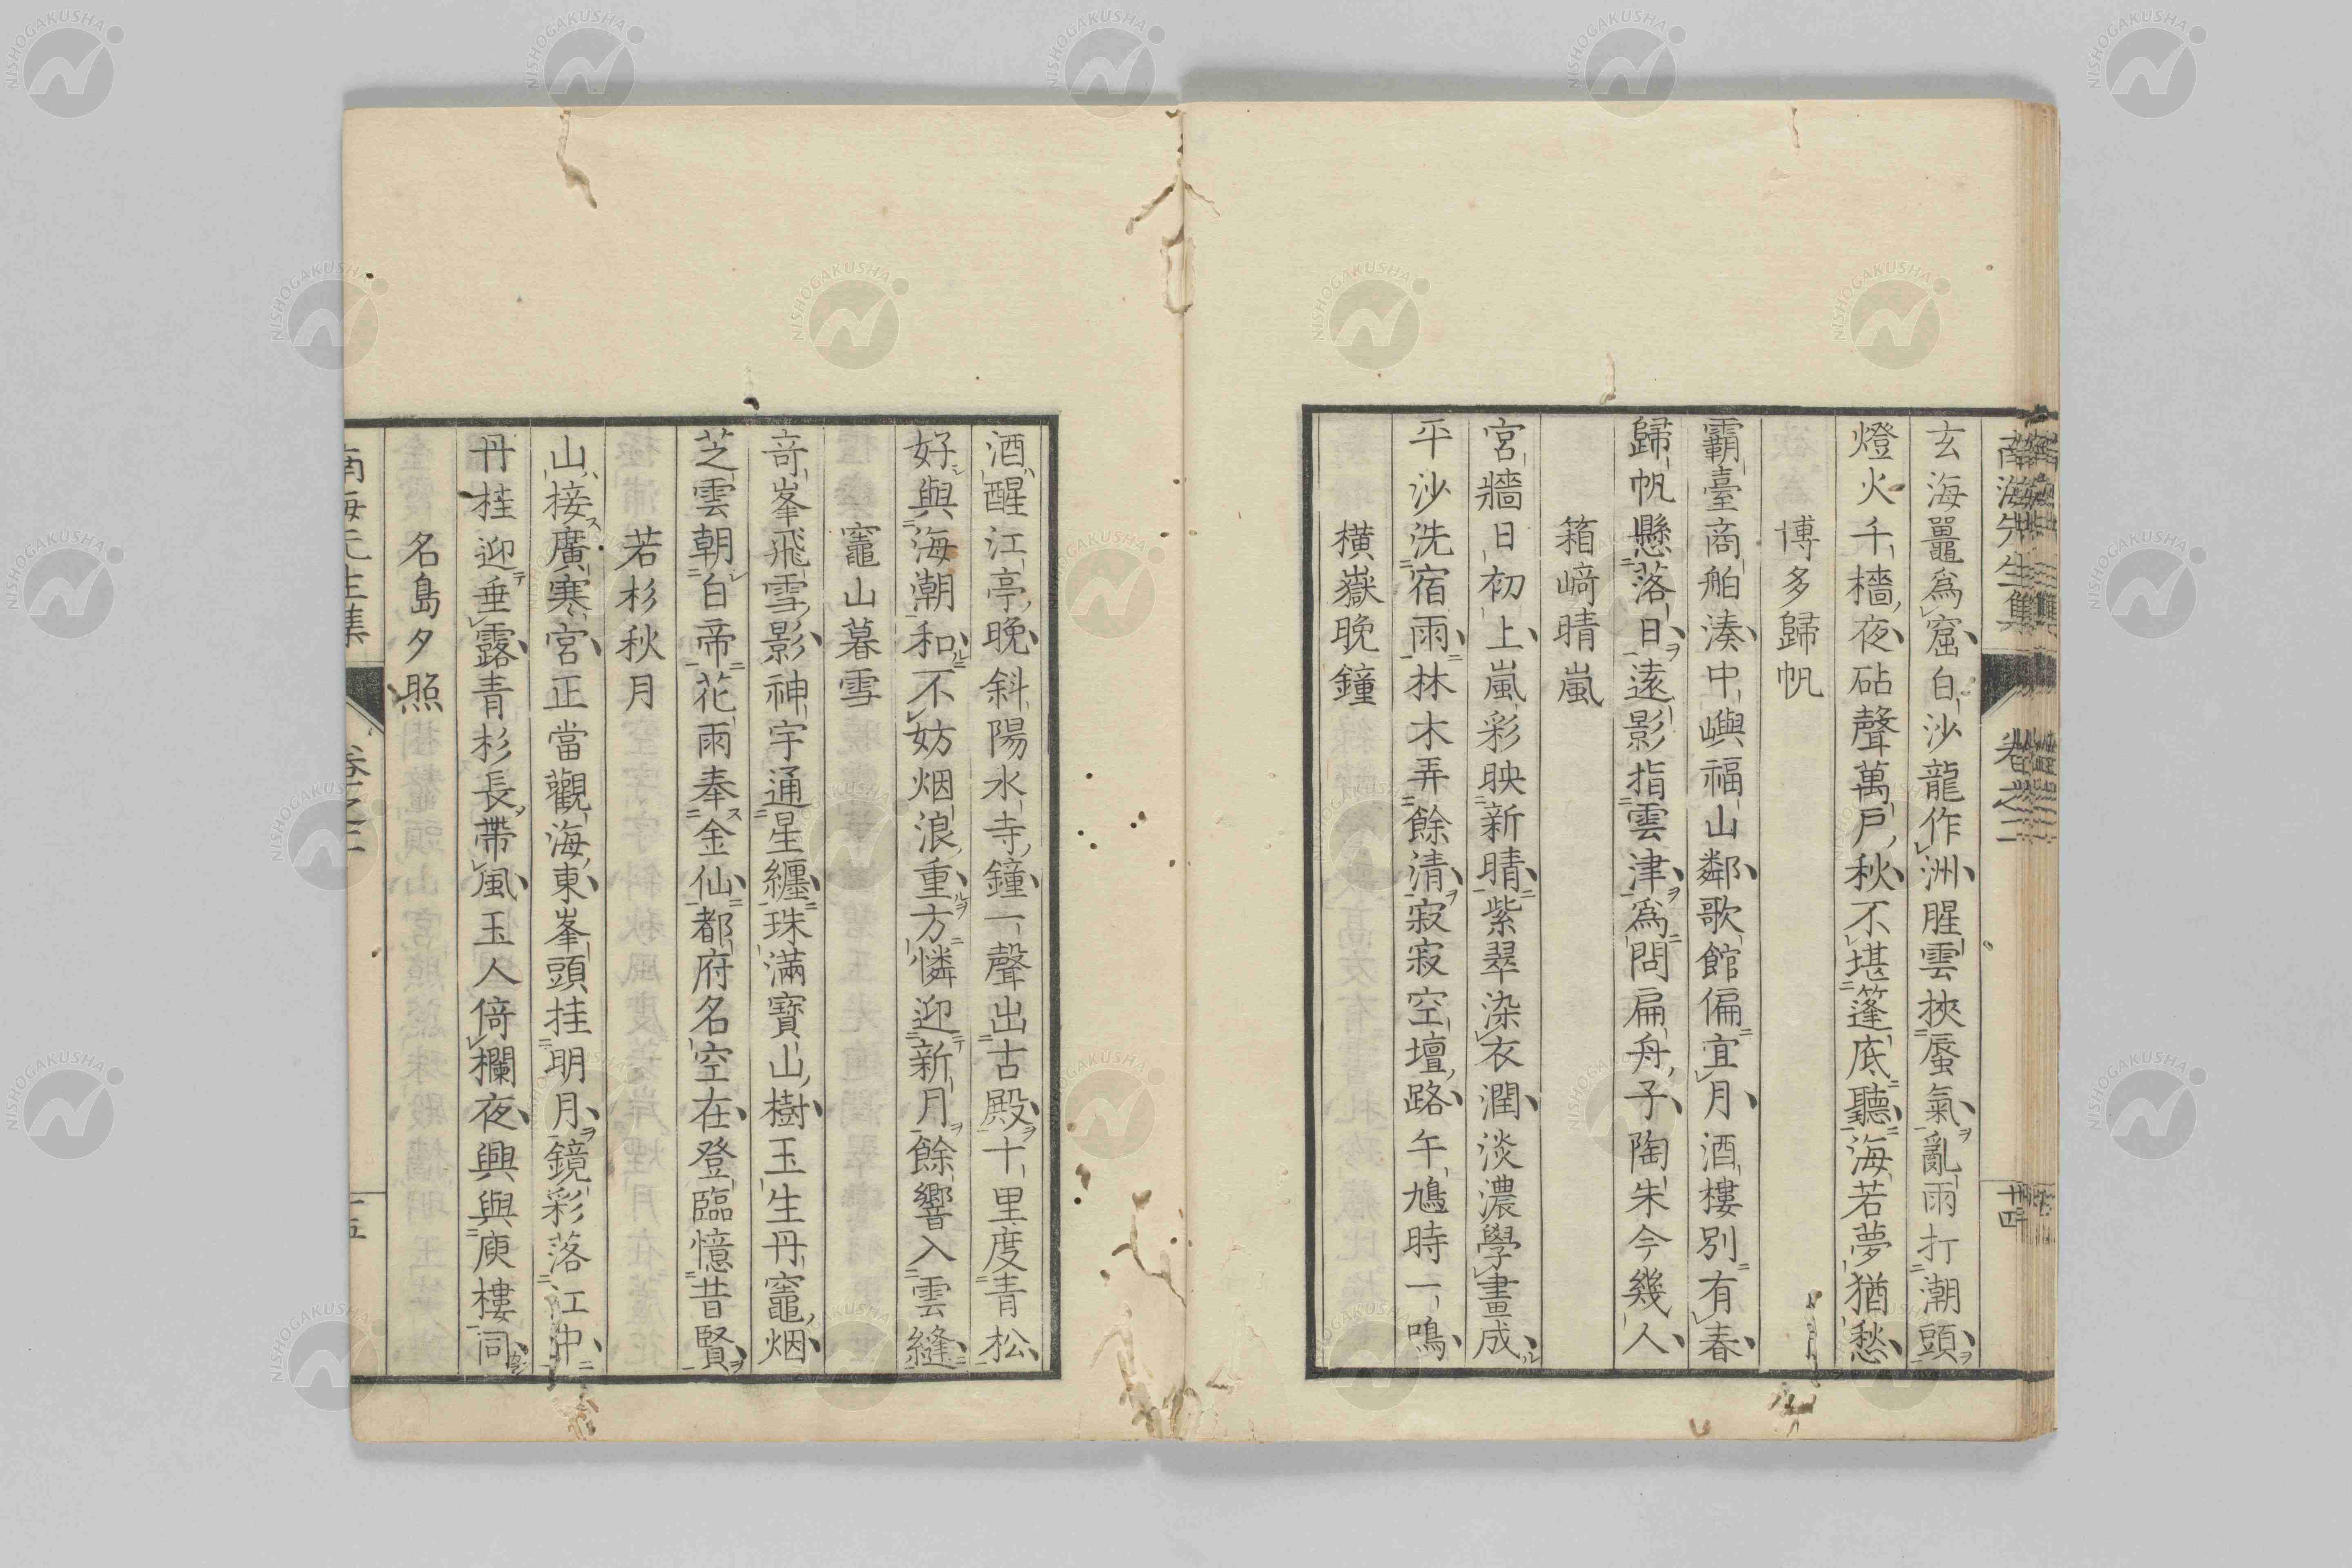 南海先生集 卷之二 十四
玄海鼉爲窟白沙龍作洲腥雲挾蜃氣亂雨打潮頭
燈火千檣夜砧聲萬戸秋不堪篷底聽海若夢猶愁
博多歸帆
霸臺商舶湊中嶼福山鄰歌館偏宜月酒樓別有春
歸帆懸落日遠影指雲津爲問扁舟子陶朱今幾人
箱﨑晴嵐
宮牆日初上嵐彩映新晴紫翠染衣潤淡濃學畫成
平沙洗宿雨林木弄餘清寂寂空壇路午鳩時一鳴
橫嶽晚鐘
酒醒江亭晚斜陽水寺鐘一聲出古殿十里度青松
好與海潮和不妨烟浪重方憐迎新月餘響入雲縫
竈山暮雪
奇峯飛雪影神宇通星纏珠滿寶山樹玉生丹竈烟
芝雲朝白帝花雨奉金仙都府名空在登臨憶昔賢
若杉秋月
山接廣寒宮正當觀海東峯頭挂明月鏡彩落江中
丹桂迎垂露青杉長帶風玉人倚欄夜興與庾樓同
名島夕照
南海先生集 卷之二 十五
NISHOGAKUSHA